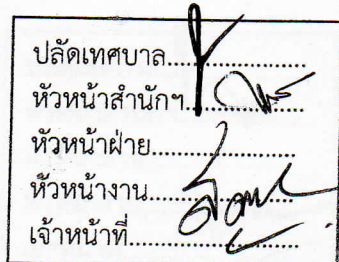 ปลัดเทศบาล....................
หัวหน้าสำนักฯ....................
หัวหน้าฝ่าย....................
หัวหน้างาน....................
เจ้าหน้าที่....................